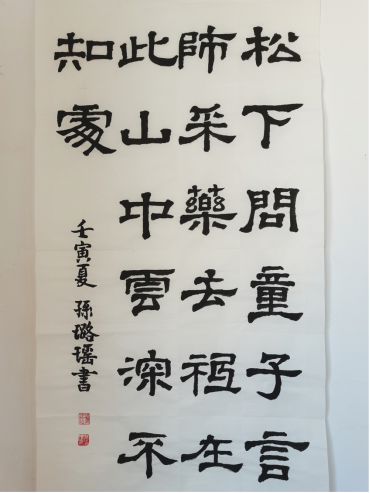 松下問童子言
師采藥去祗在
此山中雲深不
知處
壬寅夏 孫璐瑶書